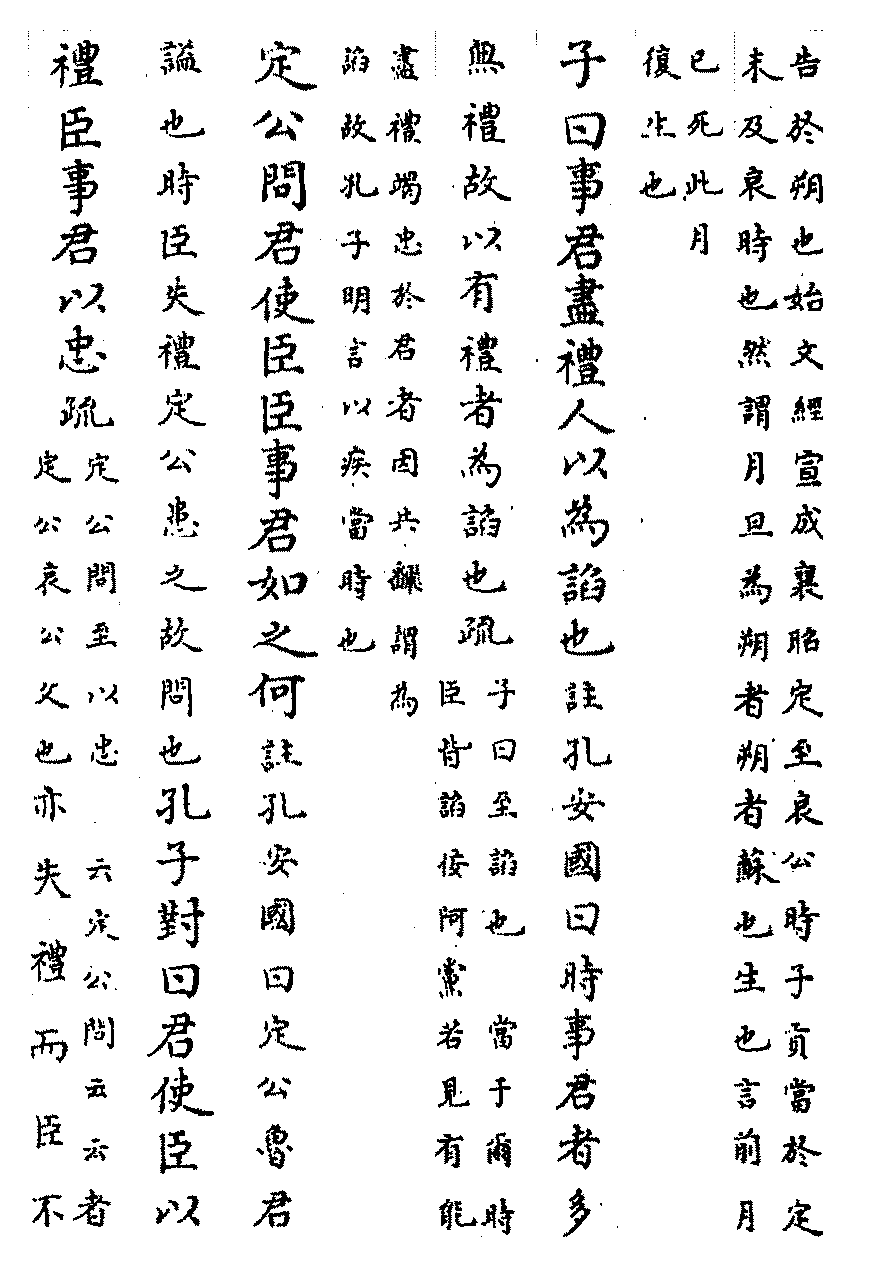 告於朔也始文經宣成襄昭定至哀公時子貢當於定
未及哀時也然謂月旦為朔者朔者蘇也生也言前月
已死此月
復生也
子曰事君盡禮人以為諂也註孔安國曰時事君者多
無禮故以有禮者為諂也疏
子曰至諂也 當于爾時
臣皆諂佞阿黨若見有能
盡禮竭忠於君者因共翻謂為
諂故孔子明言以疾當時也
定公問君使臣臣事君如之何註孔安國曰定公魯君
謚也時臣失禮定公患之故問也孔子對曰君使臣以
禮臣事君以忠疏
定公問至以忠 云定公問云云者
定公哀公父也亦失禮而臣不